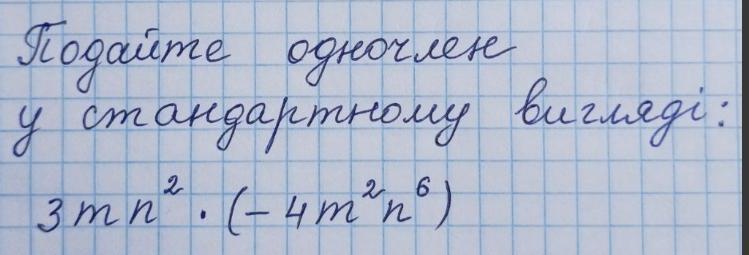 Подайте одночлен
у стандартному вигляді:
3mn² · (-4m²n⁶)